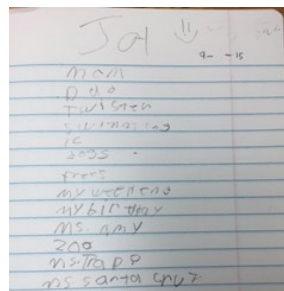 Jal
9- -15
mom
Dad
Twister
swimming
ic
dogs
trees
my weekend
my birthday
ms. amy
zoo
ms. Trapp
ms. santa cruz